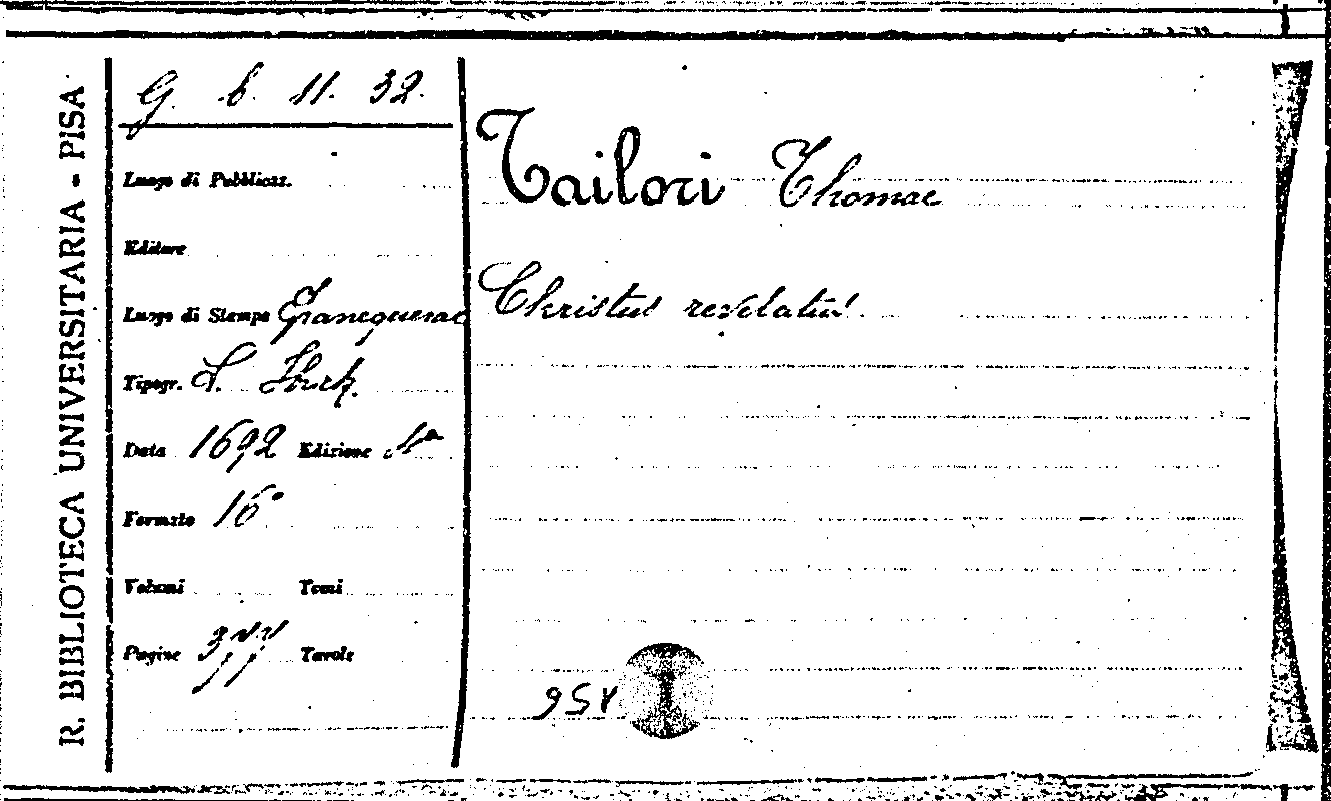 R. BIBLIOTECA UNIVERSITARIA - PISA
G. b. 11. 32.
Luogo di Pubblicaz.
Editore
Luogo di Stampa Franequerae
Tipogr. L. Strik.
Data 1692 Edizione 1ª
Formato 16°
Volumi Tomi
Pagine 377 Tavole
Tailori Thomae
Christus revelatus.